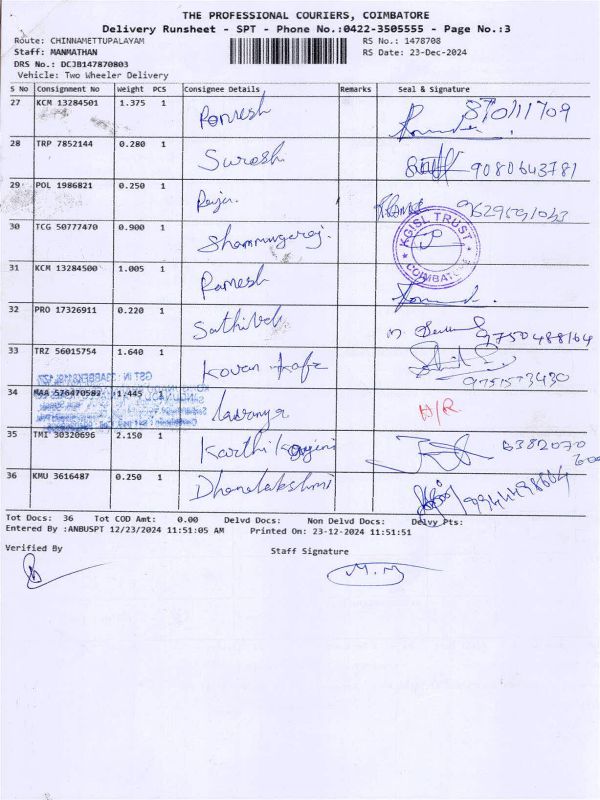 THE PROFESSIONAL COURIERS, COIMBATORE
Delivery Runsheet - SPT - Phone No.:0422-3505555 - Page No.:3
Route: CHINNAMETTUPALAYAM RS No.: 1478708
Staff: MANMATHAN RS Date: 23-Dec-2024
DRS No.: DCJB147870803
Vehicle: Two Wheeler Delivery
S No Consignment No Weight PCS Consignee Details Remarks Seal & Signature
27 KCM 13284501 1.375 1 Ramesh
28 TRP 7852144 0.280 1 Suresh 9080643781
29 POL 1986821 0.250 1
30 TCG 50777470 0.900 1 Shanmugaraj. KGISL TRUST COIMBATORE
31 KCM 13284500 1.005 1 Ramesh
32 PRO 17326911 0.220 1 9750488164
33 TRZ 56015754 1.640 1 9751573430
34 MAA 576470582 1.445 1 Lavanya H/R.
35 TMI 30320696 2.150 1
36 KMU 3616487 0.250 1 Dhanalakshmi
Tot Docs: 36 Tot COD Amt: 0.00 Delvd Docs: Non Delvd Docs: Delvy Pts:
Entered By :ANBUSPT 12/23/2024 11:51:05 AM Printed On: 23-12-2024 11:51:51
Verified By Staff Signature
M.M